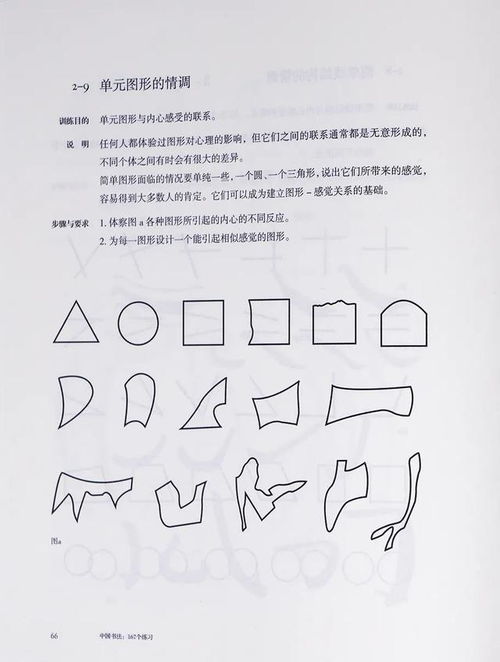 2-9 单元图形的情调
训练目的 单元图形与内心感受的联系。
说 明 任何人都体验过图形对心理的影响，但它们之间的联系通常都是无意形成的，
不同个体之间有时会有很大的差异。
简单图形面临的情况要单纯一些，一个圆、一个三角形，说出它们所带来的感觉，
容易得到大多数人的肯定。它们可以成为建立图形-感觉关系的基础。
步骤与要求 1. 体察图a各种图形所引起的内心的不同反应。
2. 为每一图形设计一个能引起相似感觉的图形。
图a
66 中国书法：167个练习